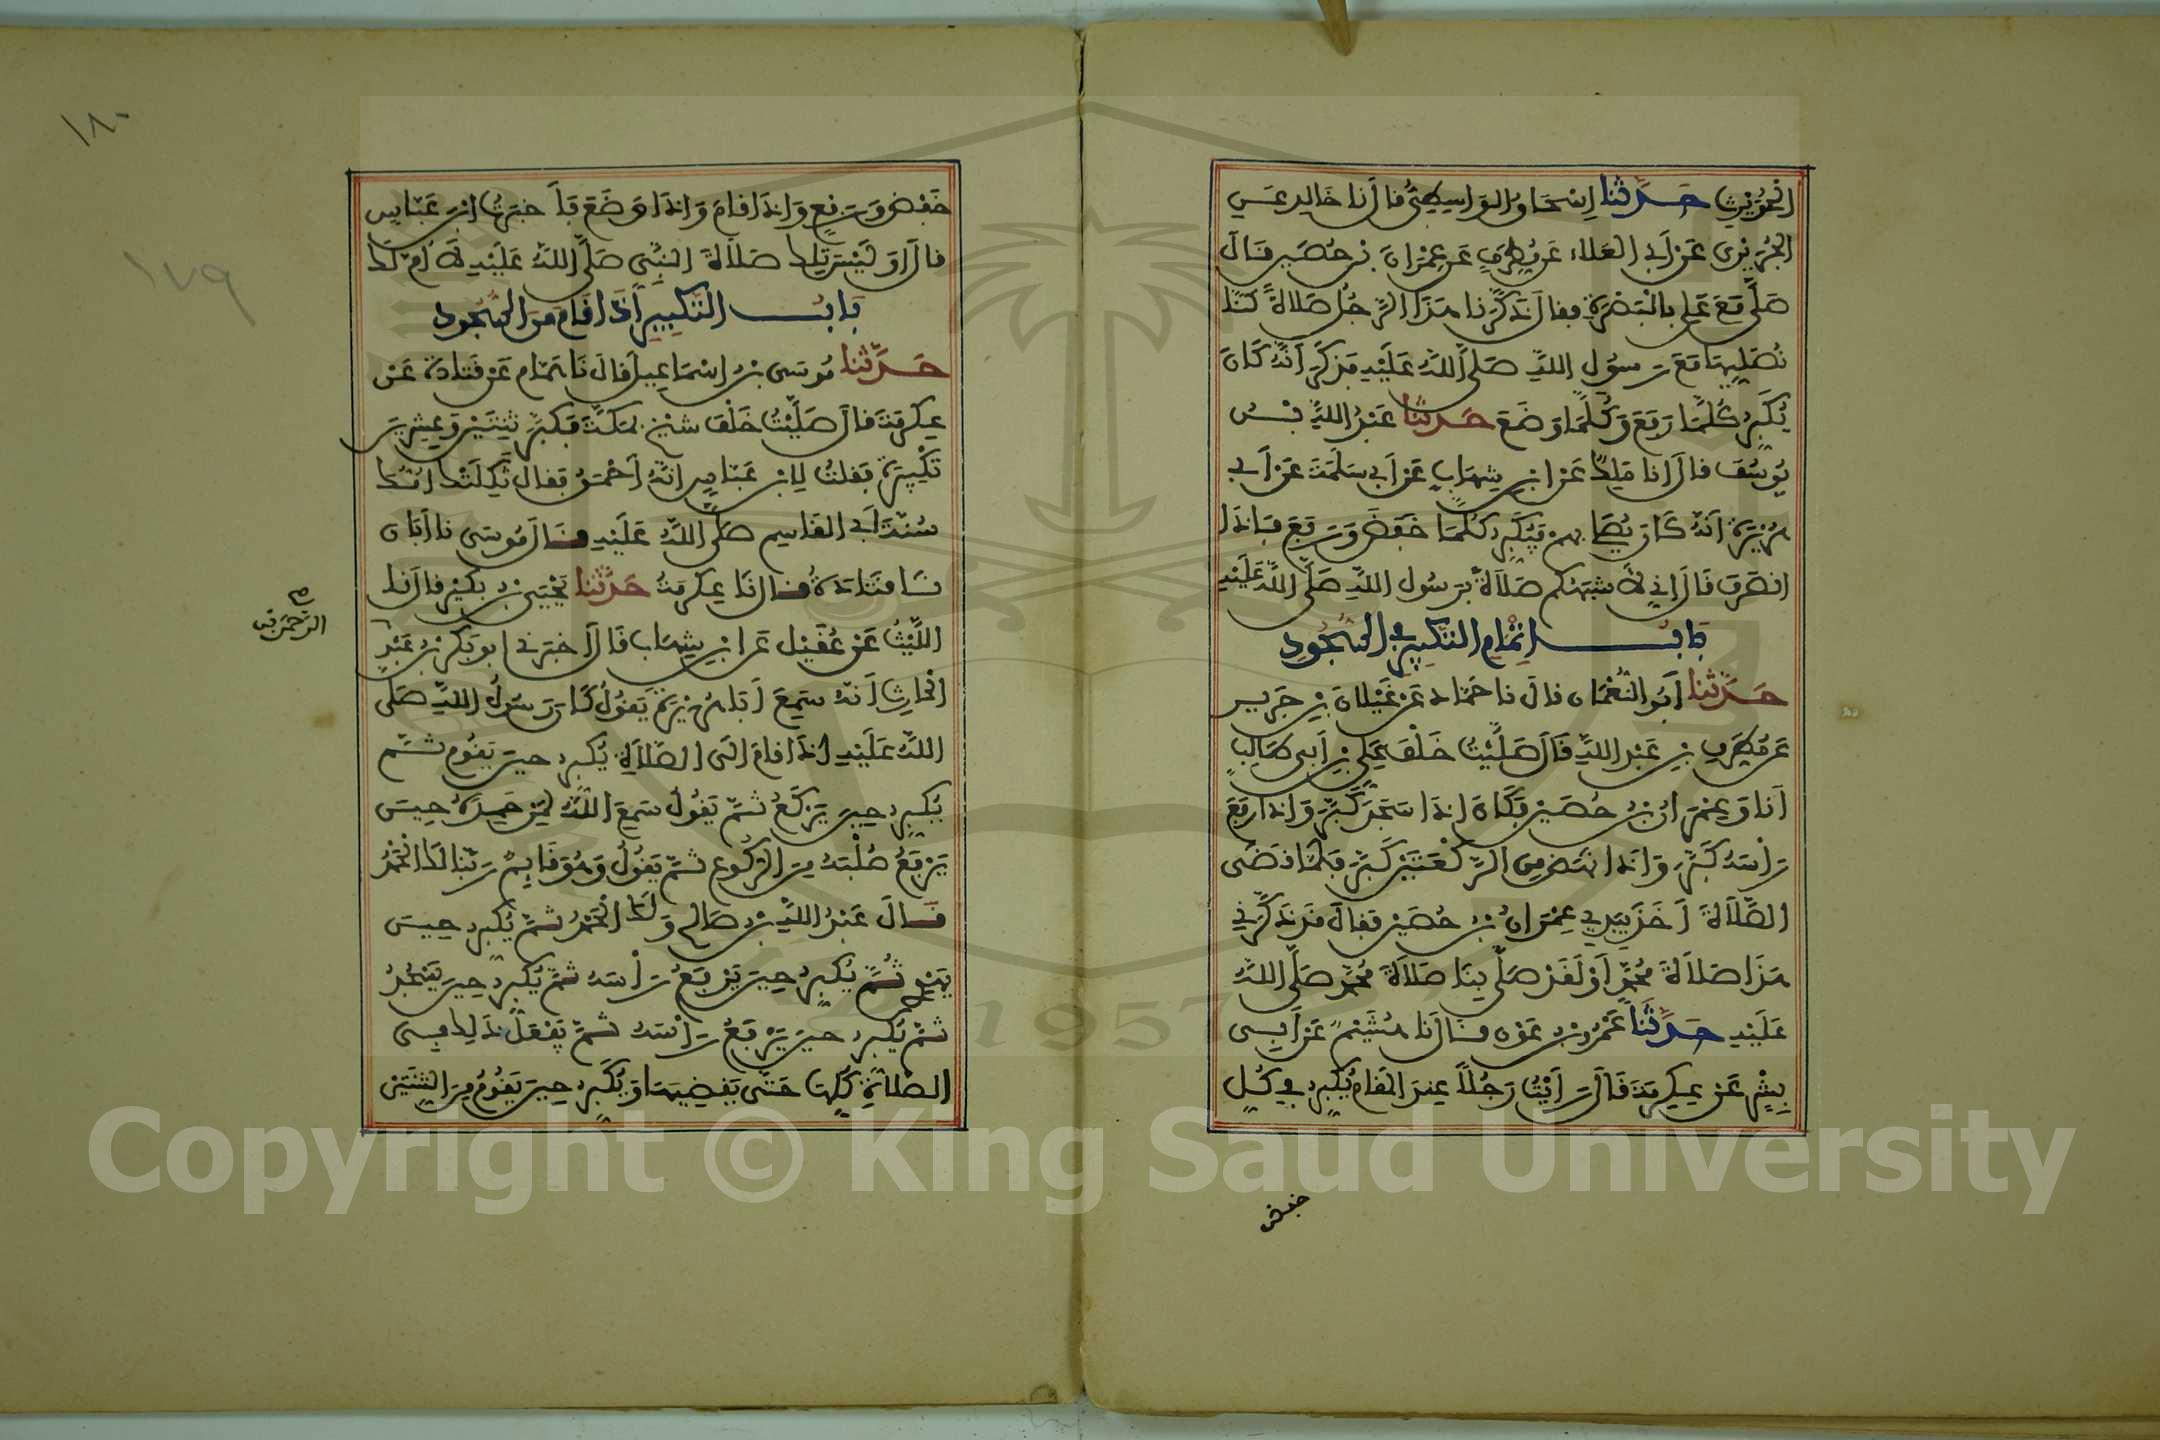 الحويرث حدثنا إسحاق الواسطي قال أنا خالد عن
الجريري عن أبي العلاء عن مطرف عن عمران بن حصين قال
صلى مع علي بالبصرة فقال ذكرنا هذا الرجل صلاة كنا
نصليها مع رسول الله صلى الله عليه فذكر أنه كان
يكبر كلما رفع وكلما وضع حدثنا عبد الله بن
يوسف قال أنا ملك عن ابن شهاب عن أبي سلمة عن أبي
هريرة أنه كان يصلي بهم فيكبر كلما خفض ورفع فإذا
انصرف قال إني لأشبهكم صلاة برسول الله صلى الله عليه
باب إتمام التكبير في السجود
حدثنا أبو النعمان قال نا حماد عن غيلان بن جرير
عن مطرف بن عبد الله قال صليت خلف علي بن أبي طالب
أنا وعمران بن حصين فكان إذا سجد كبر وإذا رفع
رأسه كبر وإذا نهض من الركعتين كبر فلما قضى
الصلاة أخذ بيدي عمران بن حصين فقال قد ذكرني
هذا صلاة محمد أو لقد صلى بنا صلاة محمد صلى الله
عليه حدثنا عمرو بن عون قال نا هشيم عن أبي
بشر عن عكرمة قال رأيت رجلا عند المقام يكبر في كل
خفض
خفض ورفع وإذا قام وإذا وضع فأخبرت ابن عباس
قال أو ليس تلك صلاة النبي صلى الله عليه لا أم لك
باب التكبير إذا قام من السجود
حدثنا موسى بن إسماعيل قال نا همام عن قتادة عن
عكرمة قال صليت خلف شيخ بمكة فكبر ثنتين وعشرين
تكبيرة فقلت لابن عباس إنه أحمق فقال ثكلتك أمك
سنة أبي القاسم صلى الله عليه وقال موسى نا أبان
نا قتادة قال نا عكرمة حدثنا يحيى بن بكير قال نا
الليث عن عقيل عن ابن شهاب قال أخبرني أبو بكر بن عبد
الرحمن بن صح
الحارث أنه سمع أبا هريرة يقول كان رسول الله صلى
الله عليه إذا قام إلى الصلاة يكبر حين يقوم ثم
يكبر حين يركع ثم يقول سمع الله لمن حمده حين
يرفع صلبه من الركوع ثم يقول وهو قايم ربنا لك الحمد
قال عبد الله بن صالح ولك الحمد ثم يكبر حين
يهوي ثم يكبر حين يرفع رأسه ثم يكبر حين يسجد
ثم يكبر حين يرفع رأسه ثم يفعل ذلك في
الصلاة كلها حتى يقضيها ويكبر حين يقوم من الثنتين
١٨٠
١٧٩
1957
Copyright © King Saud University